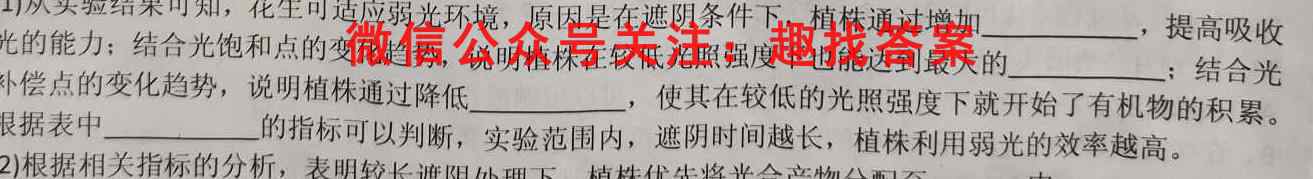 1)从实验结果可知，花生可适应弱光环境，原因是在遮阴条件下，植株通过增加________，提高吸收
微信公众号关注：趣找答案
光的能力；结合光饱和点的变化趋势，说明植株在较低光照强度下也能达到最大的________；结合光
补偿点的变化趋势，说明植株通过降低________，使其在较低的光照强度下就开始了有机物的积累。
根据表中________的指标可以判断，实验范围内，遮阴时间越长，植株利用弱光的效率越高。
2)根据相关指标的分析，表明较长遮阴处理下，植株优先将光合产物分配至________中